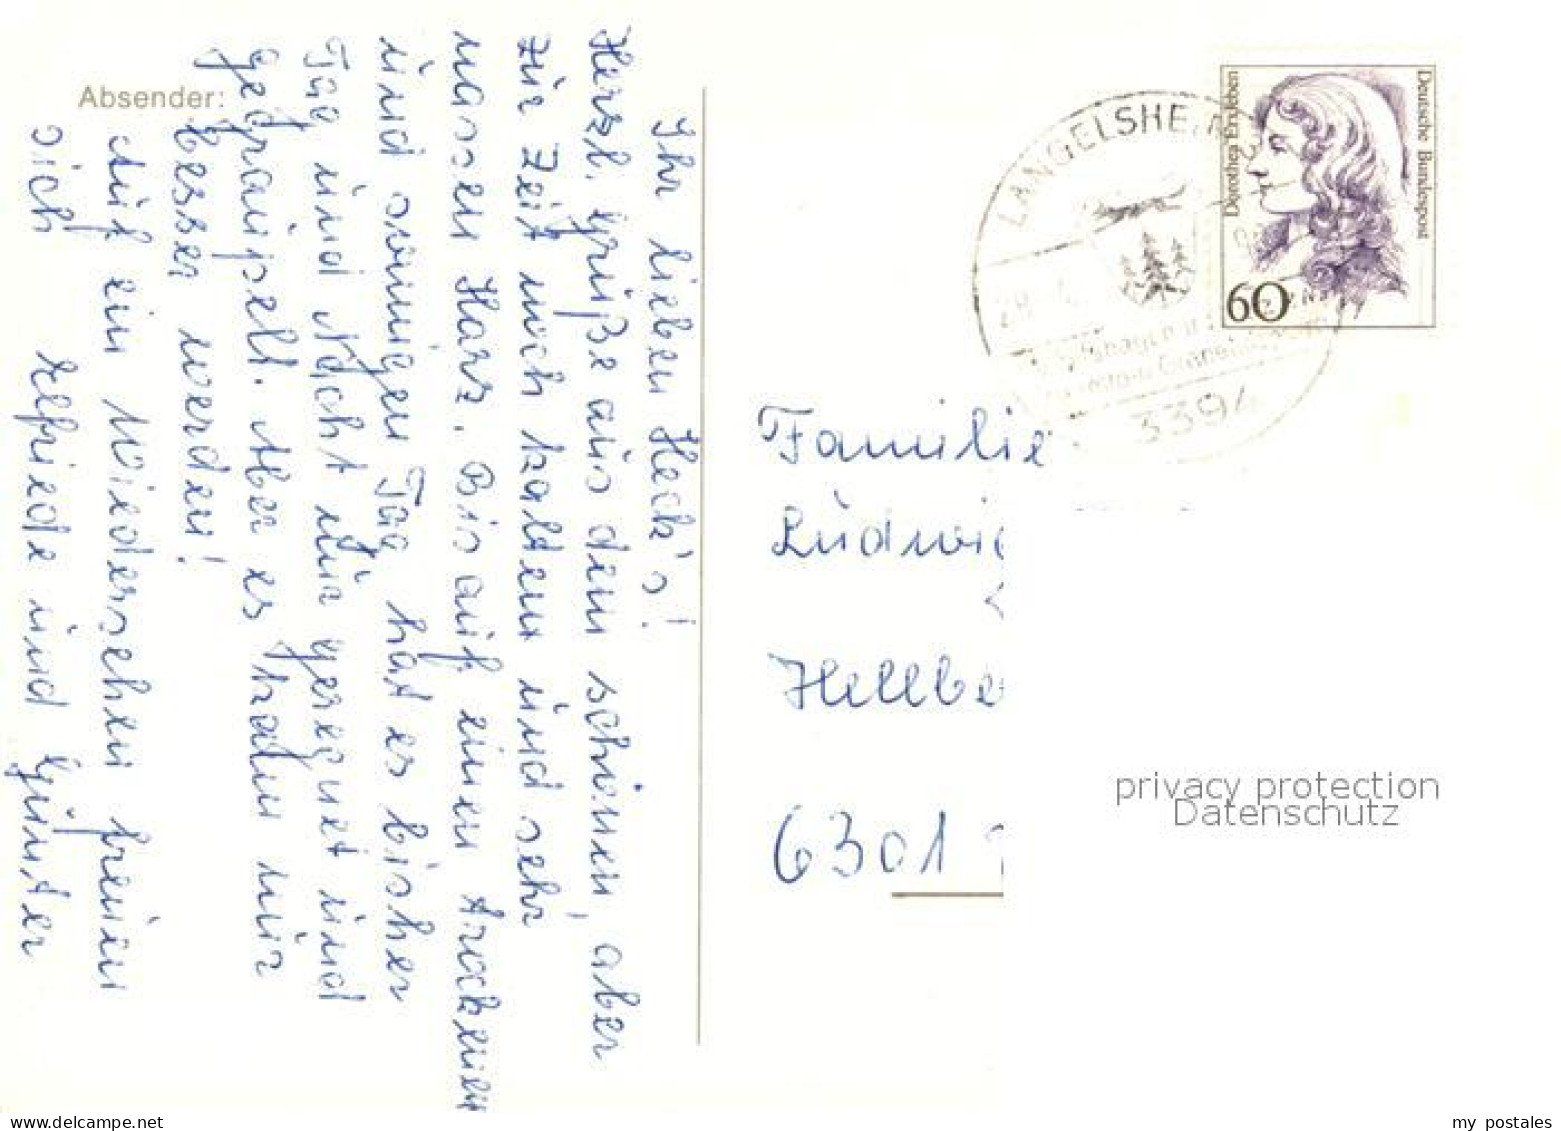 Absender:
Ihr lieben Heck's!
Herzl. Grüße aus dem schönen, aber
zur Zeit noch kalten und sehr
nassen Harz. Bis auf einen trockenen
und sonnigen Tag hat es bisher
Tag und Nacht nur geregnet und
gegraupelt. Aber es kann nur
besser werden!
Auf ein Wiedersehen freuen
sich Elfriede und Günter
LANGELSHEIM
3394
Deutsche Bundespost
Dorothea Erxleben
60
Familie
Ludwig
Hellbe
6301
privacy protection
Datenschutz
my postales